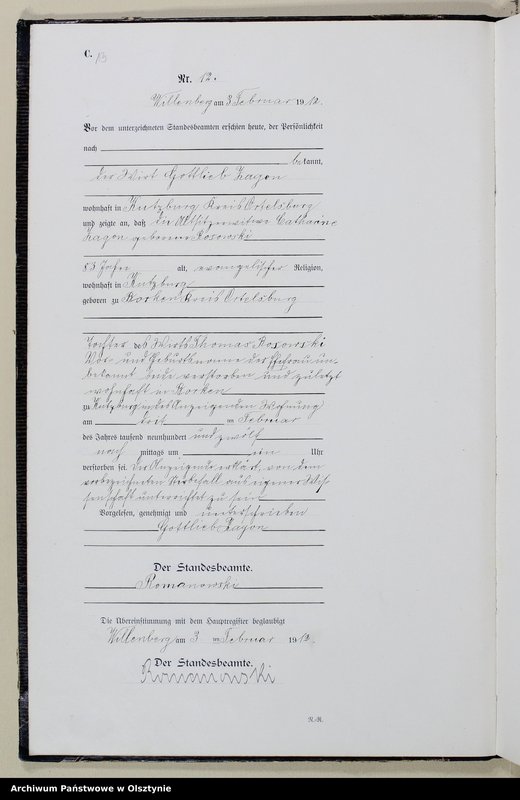 C. 13
Nr. 12.
Willenberg am 3 Februar 1912.
Vor dem unterzeichneten Standesbeamten erschien heute, der Persönlichkeit
nach
bekannt,
der Wirt Gottlieb Zagon
wohnhaft in Kutzburg Kreis Ortelsburg
und zeigte an, daß die Altsitzerwitwe Catharine
Zagon geborene Kosowski
83 Jahre alt, evangelischer Religion,
wohnhaft in Kutzburg
geboren zu Borken Kreis Ortelsburg
Tochter des Wirts Thomas Kosowski
Vor- und Geburtsname der Ehefrau un-
bekannt beide verstorben und zuletzt
wohnhaft in Borken
zu Kutzburg in des Anzeigenden Wohnung
am drei ten Februar
des Jahres tausend neunhundert und zwölf
nach mittags um ein Uhr
verstorben sei. Der Anzeigende erklärt, von dem
vorbezeichneten Sterbefall aus eigener Wis-
senschaft unterrichtet zu sein
Vorgelesen, genehmigt und unterschrieben
Gottlieb Zagon
Der Standesbeamte.
Romanowski
Die Übereinstimmung mit dem Hauptregister beglaubigt
Willenberg am 3 ten Februar 1912.
Der Standesbeamte.
Romanowski
R.-R.
Archiwum Państwowe w Olsztynie